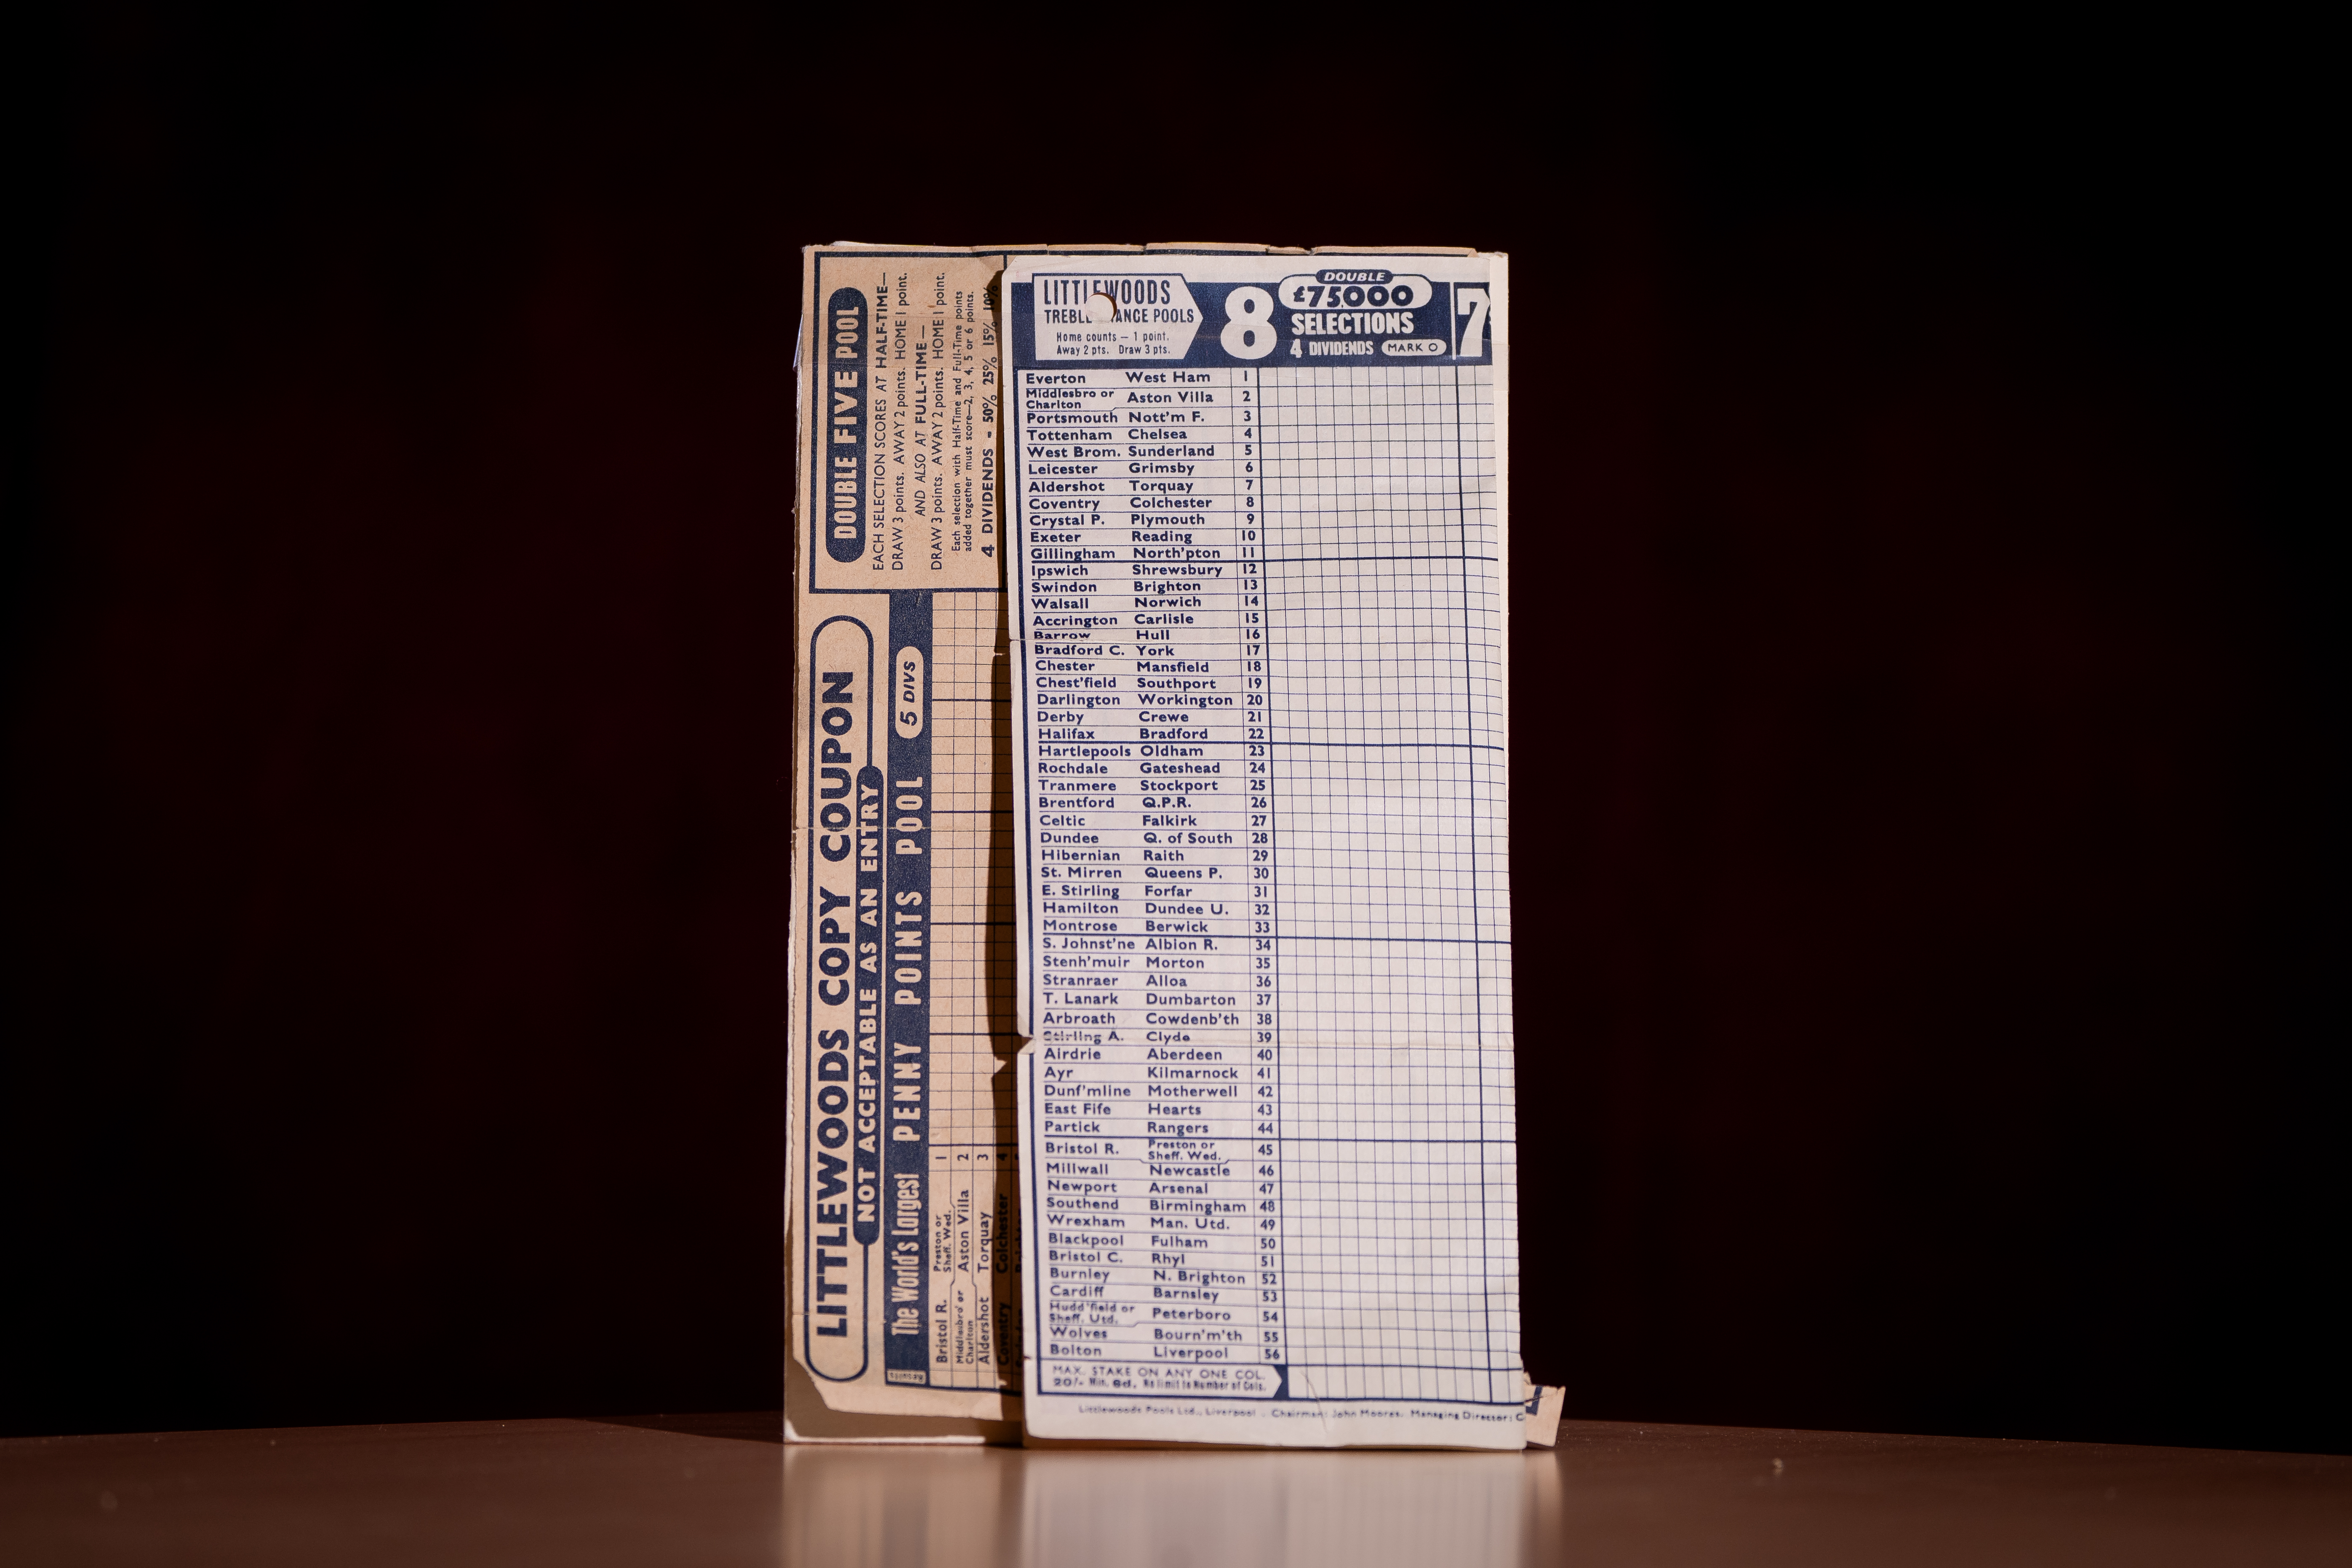 DOUBLE FIVE POOL
EACH SELECTION SCORES AT HALF-TIME—
DRAW 3 points. AWAY 2 points. HOME 1 point.
AND ALSO AT FULL-TIME—
DRAW 3 points. AWAY 2 points. HOME 1 point.
Each selection with Half-Time and Full-Time points
added together must score—2, 3, 4, 5 or 6 points.
4 DIVIDENDS - 50% 25% 15% 10%
LITTLEWOODS COPY COUPON
NOT ACCEPTABLE AS AN ENTRY
The World's Largest PENNY POINTS POOL 5 DIVS
Results
Bristol R. Preston or Sheff. Wed. 1
Middlesbro' or Charlton Aston Villa 2
Aldershot Torquay 3
Coventry Colchester 4
LITTLEWOODS
TREBLE ANCE POOLS
Home counts — 1 point.
Away 2 pts. Draw 3 pts.
8
DOUBLE
£75,000
SELECTIONS
4 DIVIDENDS MARK O
7
Everton West Ham 1
Middlesbro or Charlton Aston Villa 2
Portsmouth Nott'm F. 3
Tottenham Chelsea 4
West Brom. Sunderland 5
Leicester Grimsby 6
Aldershot Torquay 7
Coventry Colchester 8
Crystal P. Plymouth 9
Exeter Reading 10
Gillingham North'pton 11
Ipswich Shrewsbury 12
Swindon Brighton 13
Walsall Norwich 14
Accrington Carlisle 15
Barrow Hull 16
Bradford C. York 17
Chester Mansfield 18
Chest'field Southport 19
Darlington Workington 20
Derby Crewe 21
Halifax Bradford 22
Hartlepools Oldham 23
Rochdale Gateshead 24
Tranmere Stockport 25
Brentford Q.P.R. 26
Celtic Falkirk 27
Dundee Q. of South 28
Hibernian Raith 29
St. Mirren Queens P. 30
E. Stirling Forfar 31
Hamilton Dundee U. 32
Montrose Berwick 33
S. Johnst'ne Albion R. 34
Stenh'muir Morton 35
Stranraer Alloa 36
T. Lanark Dumbarton 37
Arbroath Cowdenb'th 38
Stirling A. Clyde 39
Airdrie Aberdeen 40
Ayr Kilmarnock 41
Dunf'mline Motherwell 42
East Fife Hearts 43
Partick Rangers 44
Bristol R. Preston or Sheff. Wed. 45
Millwall Newcastle 46
Newport Arsenal 47
Southend Birmingham 48
Wrexham Man. Utd. 49
Blackpool Fulham 50
Bristol C. Rhyl 51
Burnley N. Brighton 52
Cardiff Barnsley 53
Hudd'field or Sheff. Utd. Peterboro 54
Wolves Bourn'm'th 55
Bolton Liverpool 56
MAX. STAKE ON ANY ONE COL.
20/- Min. 6d. No limit to Number of Cols.
Littlewoods Pools Ltd., Liverpool. Chairman: John Moores. Managing Director: C